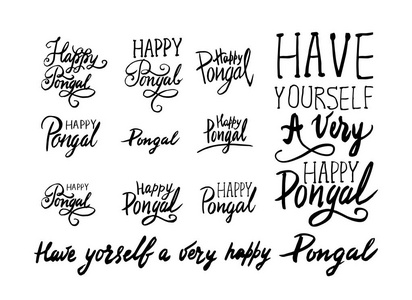 Happy
Pongal
HAPPY
Pongal
Happy
Pongal
HAPPY
Pongal
Pongal
Happy
Pongal
HAPPY
Pongal
Happy
Pongal
HAPPY
Pongal
HAVE
YOURSELF
A Very
HAPPY
Pongal
Have yorself a very happy Pongal